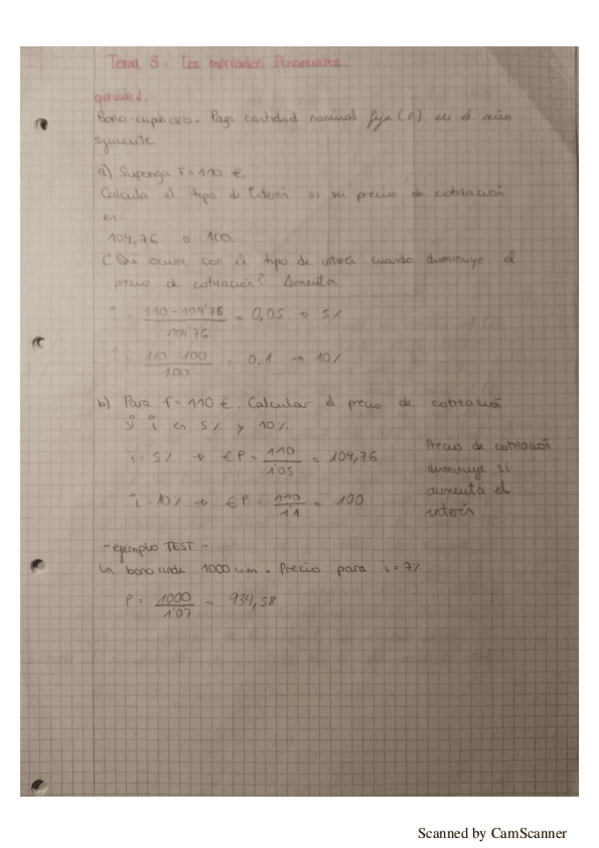 Tema 3: Los mercados financieros.
ejercicio 1.
Bono-cupón cero. Paga cantidad nominal fija (A) en el año
siguiente
a) Suponga F = 110 €
Calcula el tipo de interés si su precio de cotización
es:
104,76 o 100.
¿Qué ocurre con el tipo de interés cuando disminuye el
precio de cotización? Aumenta
i = 110 - 104'76 / 104'76 = 0,05 → 5%
i = 110 - 100 / 100 = 0,1 → 10%
b) Para F = 110 €. Calcular el precio de cotización
si i es 5% y 10%.
i = 5% → €P = 110 / 1'05 = 104,76
i = 10% → €P = 110 / 1'1 = 100
Precio de cotización
disminuye si
aumenta el
interés
- ejemplo TEST -
Un bono rinde 1000 um. Precio para i = 7%
P = 1000 / 1'07 = 934,58
Scanned by CamScanner